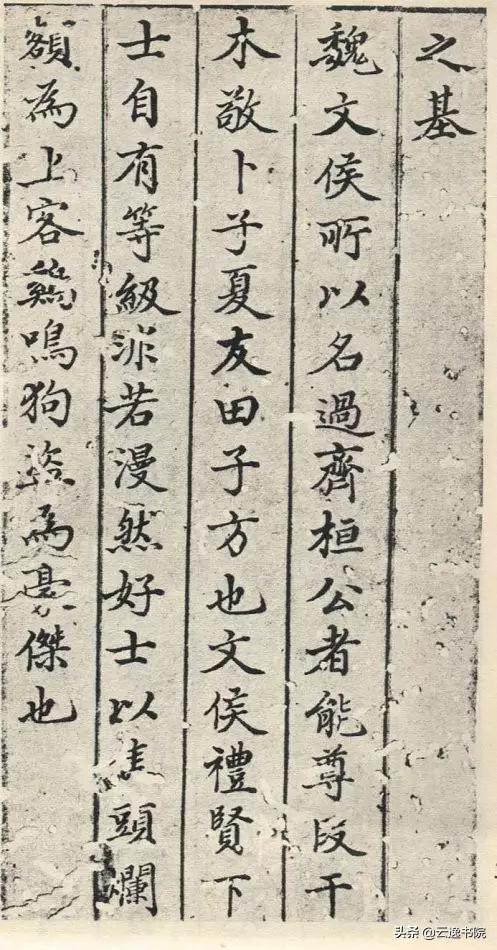 之基
魏文侯所以名過齊桓公者能尊段干
木敬卜子夏友田子方也文侯禮賢下
士自有等級非若漫然好士以焦頭爛
額為上客鷄鳴狗盜為豪傑也
头条 @云逸书院